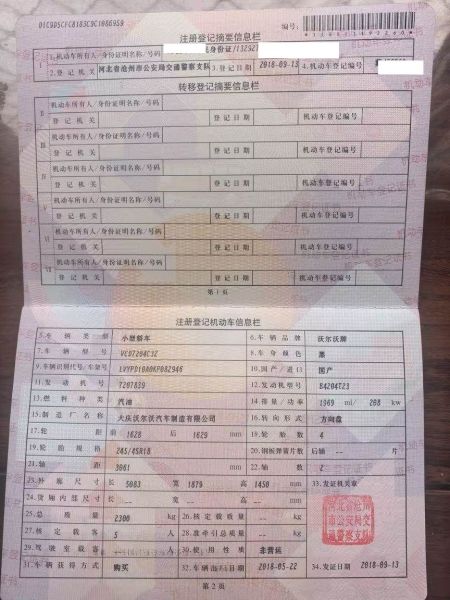 D1C9D5CFC8183C9C1086959
注册登记摘要信息栏
编号:
1.机动车所有人/身份证明名称/号码 身份证/13292
2.登记机关 河北省沧州市公安局交通警察支队 3.登记日期 2018-09-13 4.机动车登记编号
转移登记摘要信息栏
Ⅱ 机动车所有人/身份证明名称/号码
登记机关 登记日期 机动车登记编号
Ⅲ 机动车所有人/身份证明名称/号码
登记机关 登记日期 机动车登记编号
Ⅳ 机动车所有人/身份证明名称/号码
登记机关 登记日期 机动车登记编号
Ⅴ 机动车所有人/身份证明名称/号码
登记机关 登记日期 机动车登记编号
Ⅵ 机动车所有人/身份证明名称/号码
登记机关 登记日期 机动车登记编号
Ⅶ 机动车所有人/身份证明名称/号码
登记机关 登记日期 机动车登记编号
第1页
注册登记机动车信息栏
5.车辆类型 小型轿车 6.车辆品牌 沃尔沃牌
7.车辆型号 8.车身颜色 黑
9.车辆识别代号/车架号 10.国产/进口 国产
11.发动机号 7207839 12.发动机型号 B4204T23
13.燃料种类 汽油 14.排量/功率 1969 ml/ 208 kw
15.制造厂名称 大庆沃尔沃汽车制造有限公司 16.转向形式 方向盘
17.轮距 前 1628 后 1629 mm 18.轮胎数 4
19.轮胎规格 245/45R18 20.钢板弹簧片数 后轴 -- 片
21.轴距 3061 mm 22.轴数 2
23.外廓尺寸 长 5083 宽 1879 高 1450 mm 33.发证机关章
24.货厢内部尺寸 长 -- 宽 -- 高 -- mm
25.总质量 2300 kg 26.核定载质量 -- kg
27.核定载客 5 人 28.准牵引总质量 -- kg
29.驾驶室载客 -- 人 30.使用性质 非营运
河北省沧州市公安局交通警察支队
31.车辆获得方式 购买 32.车辆出厂日期 2018-05-22 34.发证日期 2018-09-13
第2页